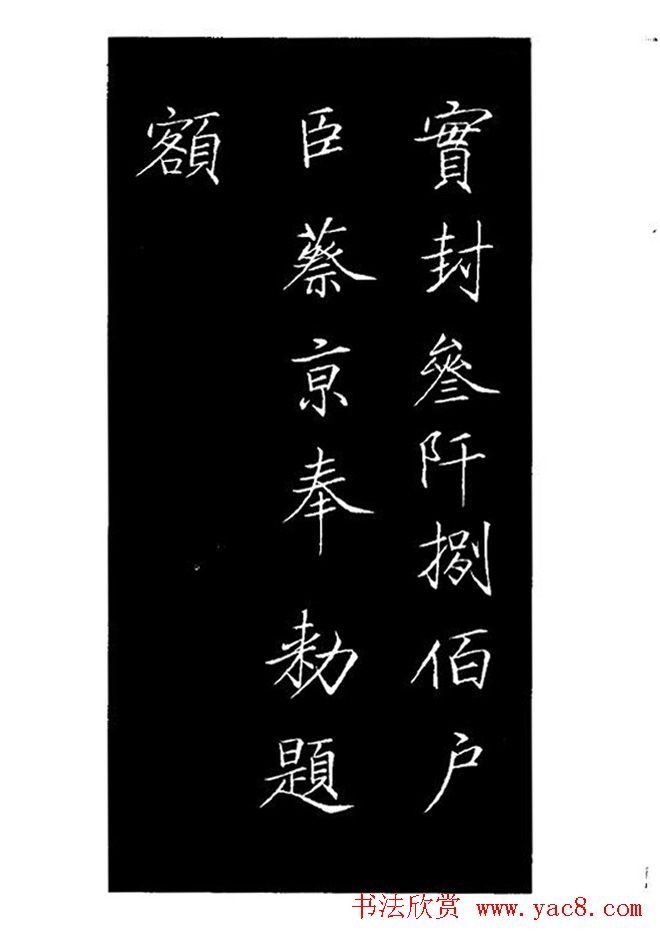 實封叄阡捌佰户
臣蔡京奉勑題
額
书法欣赏 www.yac8.com